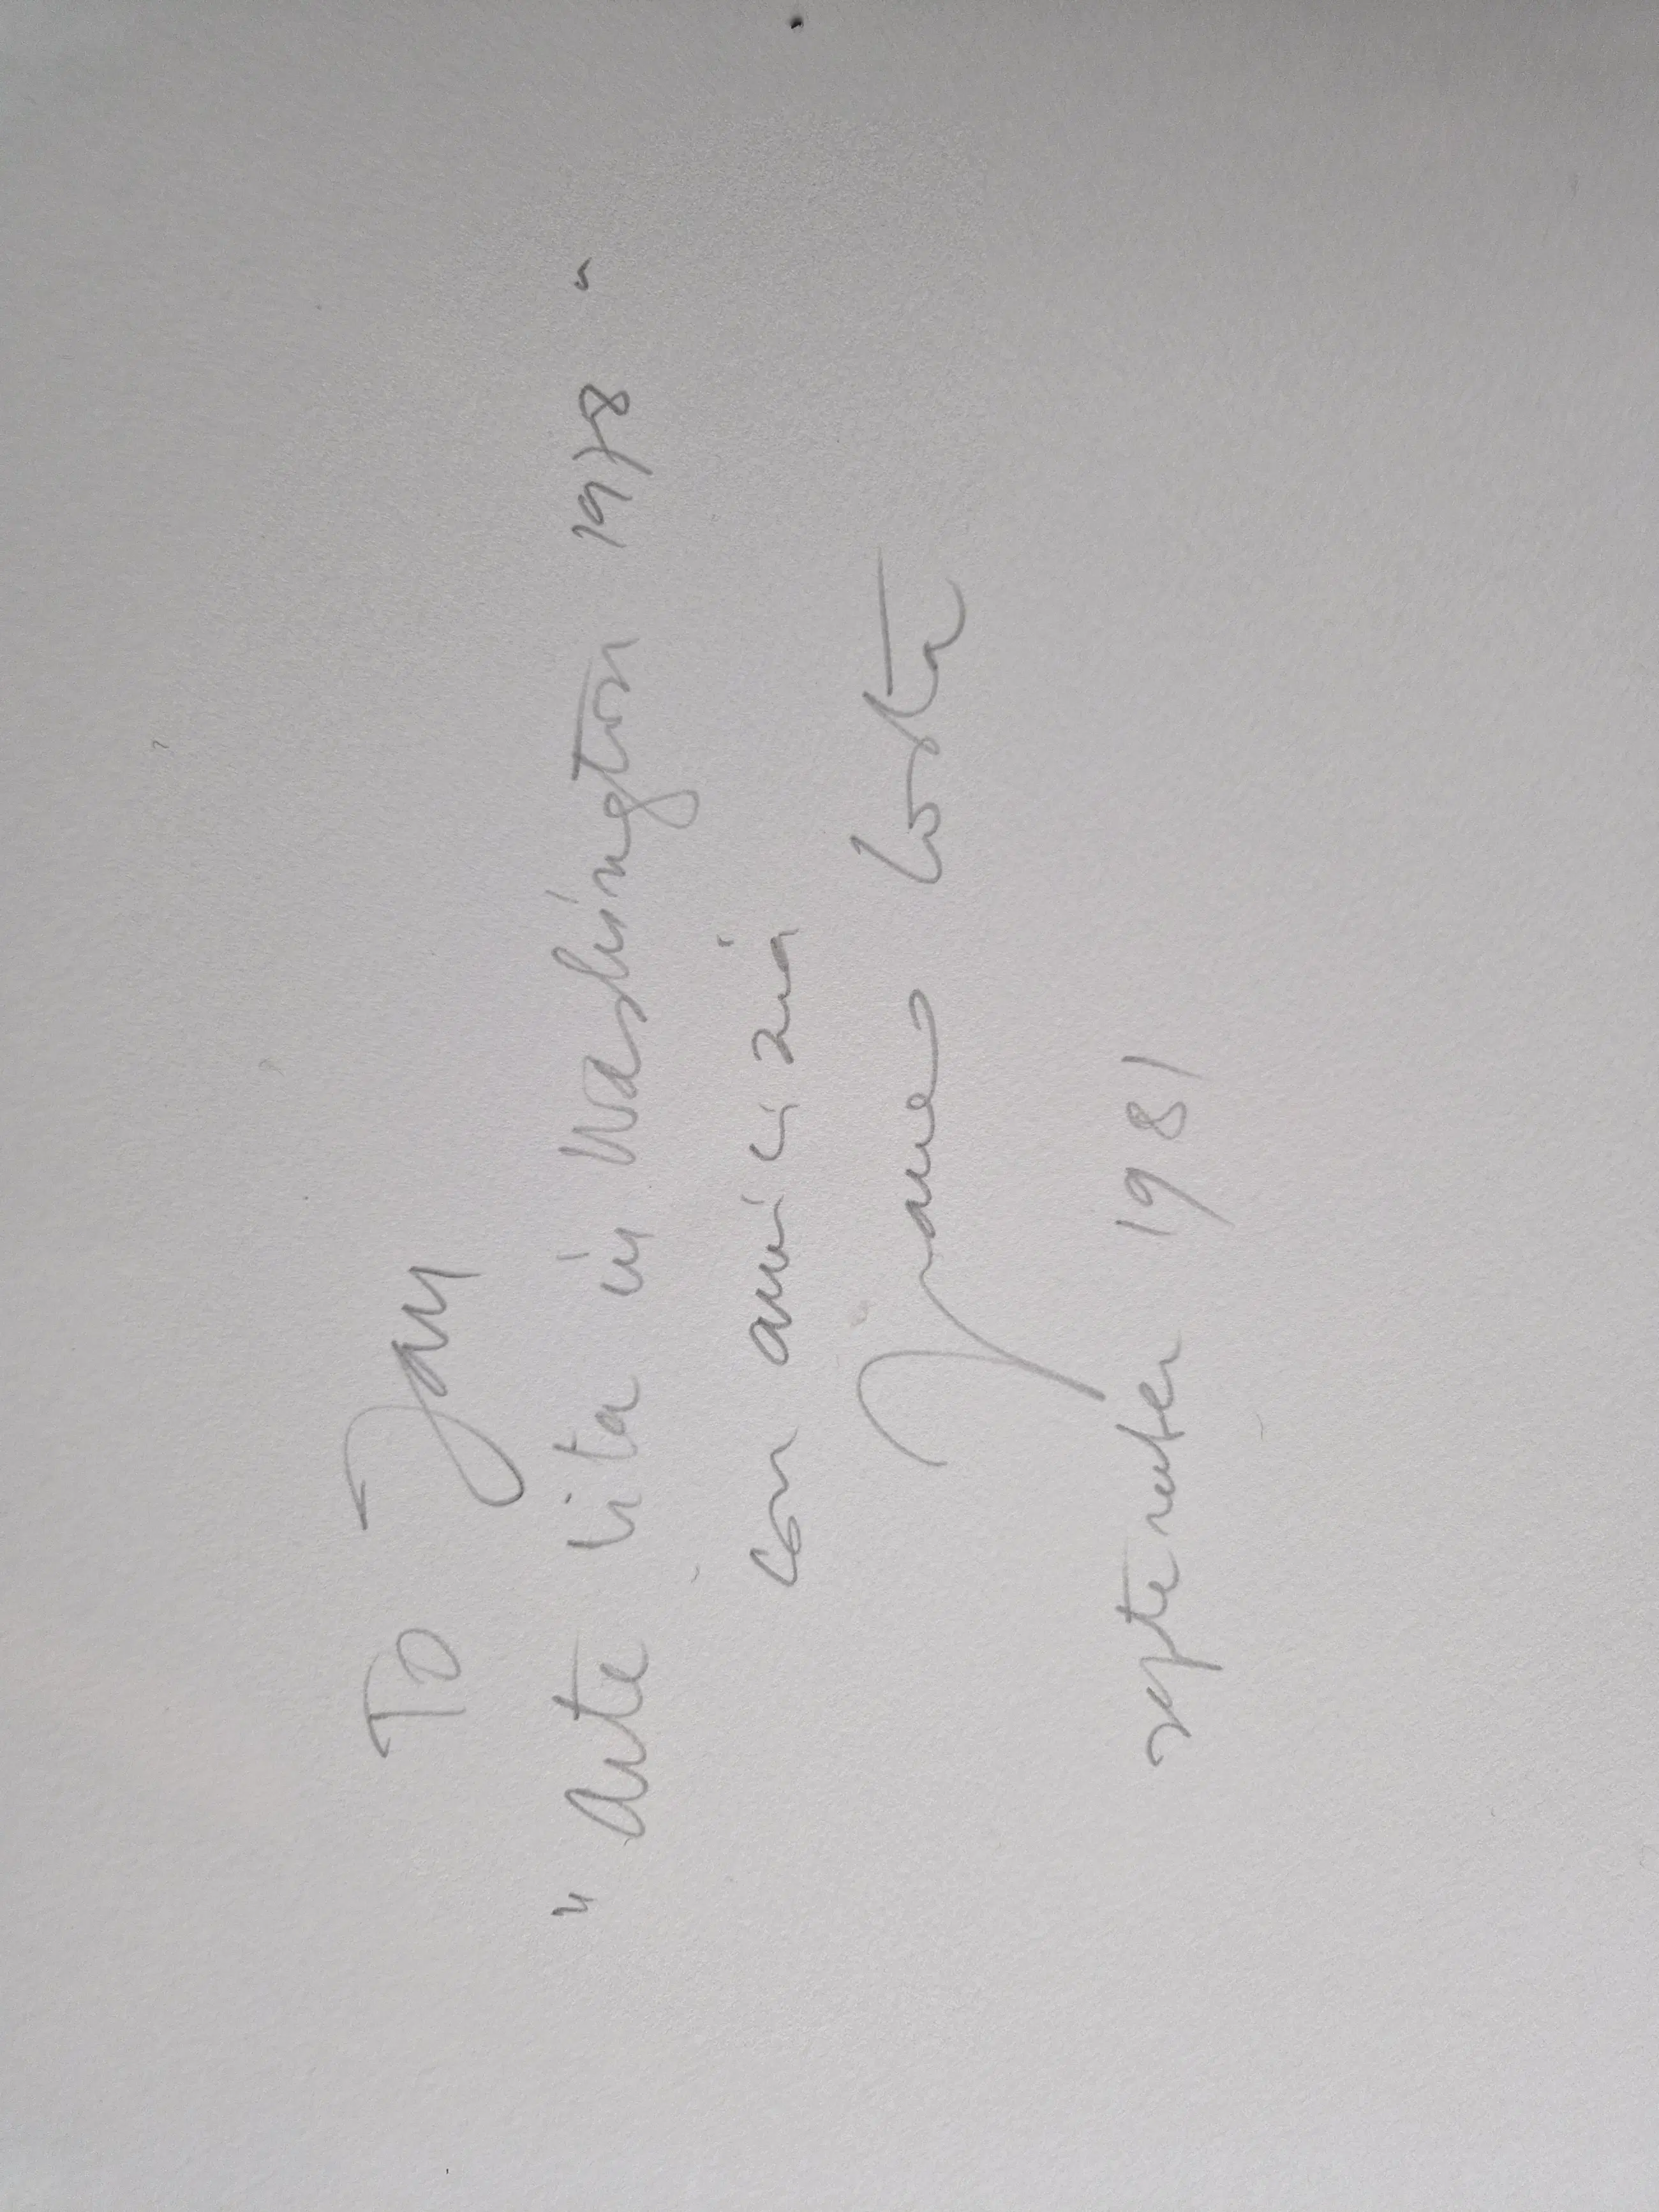 To Jan
"Arte Vita in Washington 1978"
con amicizia
Costa
september 1981